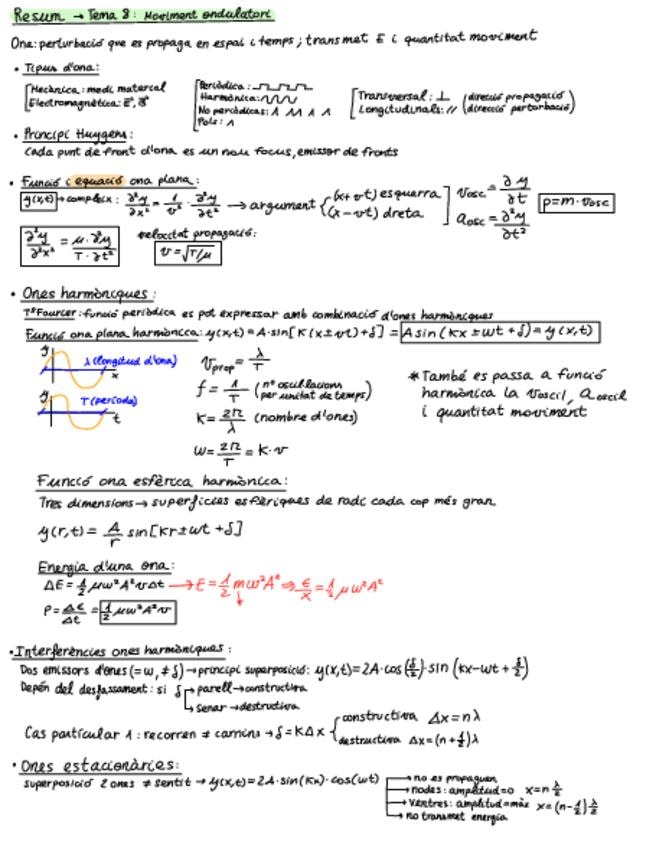 Resum → Tema 8: Moviment ondulatori
Ona: perturbació que es propaga en espai i temps; transmet E i quantitat moviment
• Tipus d'ona:
Mecànica: medi material
Electromagnètica: E⃗, B⃗
Periòdica:
Harmònica:
No periòdicas:
Pols:
Transversal: ⊥ (direcció propagació)
Longitudinals: // (direcció perturbació)
• Principi Huygens:
Cada punt de front d'ona es un nou focus, emissor de fronts
• Funció i equació ona plana:
y(x,t) → compleix: ∂²y/∂x² = 1/v² · ∂²y/∂t² → argument (x+vt) esquerra (x-vt) dreta
vosc = ∂y/∂t
aosc = ∂²y/∂t²
p=m·vosc
∂²y/∂²x² = μ·∂²y/T·∂t²
velocitat propagació:
v=√T/μ
• Ones harmòniques:
Tª Fourier: funció periòdica es pot expressar amb combinació d'ones harmòniques
Funció ona plana harmònica: y(x,t)=A·sin[K(x±vt)+δ] = Asin(kx±wt+δ)=y(x,t)
y λ(longitud d'ona) x
y T(període) t
vprop = λ/T
f = 1/T (nº oscil·lacions per unitat de temps)
K = 2π/λ (nombre d'ones)
w = 2π/T = K·v
* També es passa a funció
harmònica la voscil, aoscil
i quantitat moviment
Funció ona esfèrica harmònica:
Tres dimensions → superfícies esfèriques de radi cada cop més gran
y(r,t) = A/r sin[Kr±wt+δ]
Energia d'una ona:
ΔE = 1/2 μw²A²vΔt → E = 1/2 mw²A² ⇒ E/x = 1/2 μw²A²
P = ΔE/Δt = 1/2 μw²A²v
• Interferències ones harmòniques:
Dos emissors d'ones (=w, ≠δ) → principi superposició: y(x,t)=2A·cos(δ/2)·sin(kx-wt+δ/2)
Depèn del desfassament: si δ parell → constructiva
senar → destructiva
Cas particular 1: recorren ≠ camins → δ=KΔx
constructiva Δx=nλ
destructiva Δx=(n+1/2)λ
• Ones estacionàries:
superposició 2 ones ≠ sentit → y(x,t)=2A·sin(Kx)·cos(wt)
no es propaguen
nodes: amplitud=0 x=n λ/2
ventres: amplitud=màx x=(n-1/2)λ/2
no transmet energia